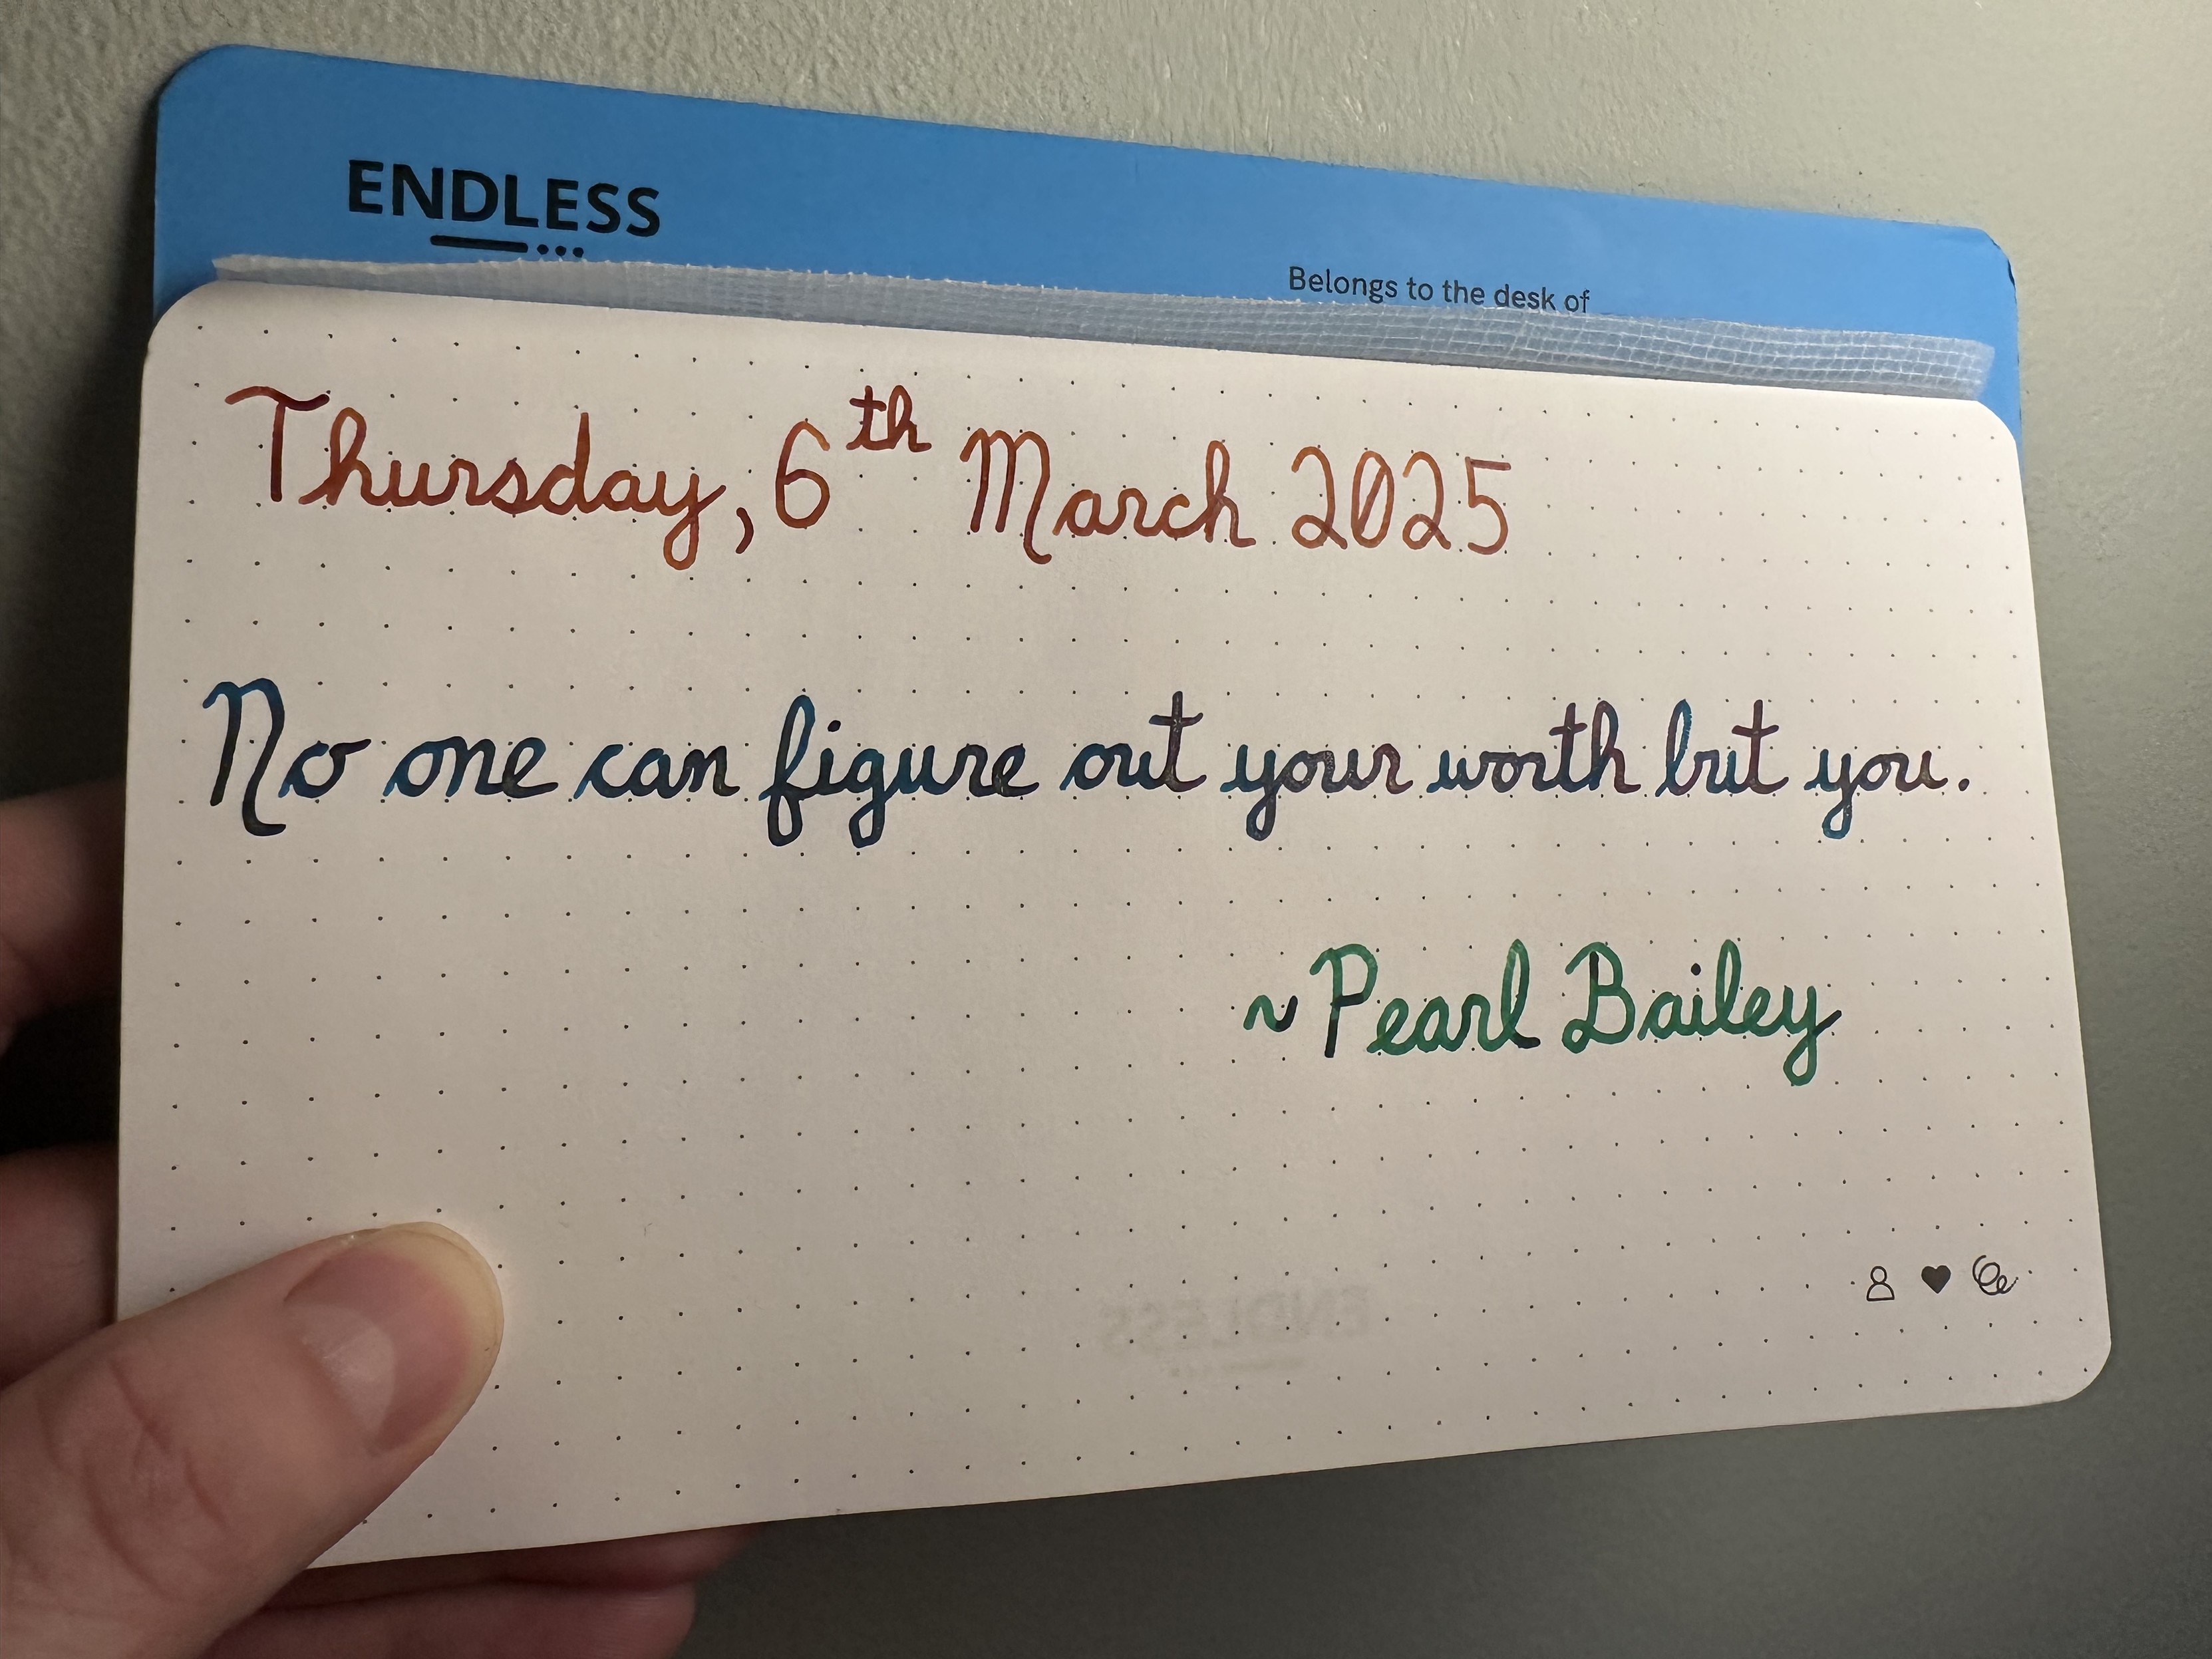 ENDLESS
Belongs to the desk of
Thursday, 6th March 2025
No one can figure out your worth but you.
~ Pearl Bailey
ENDLESS